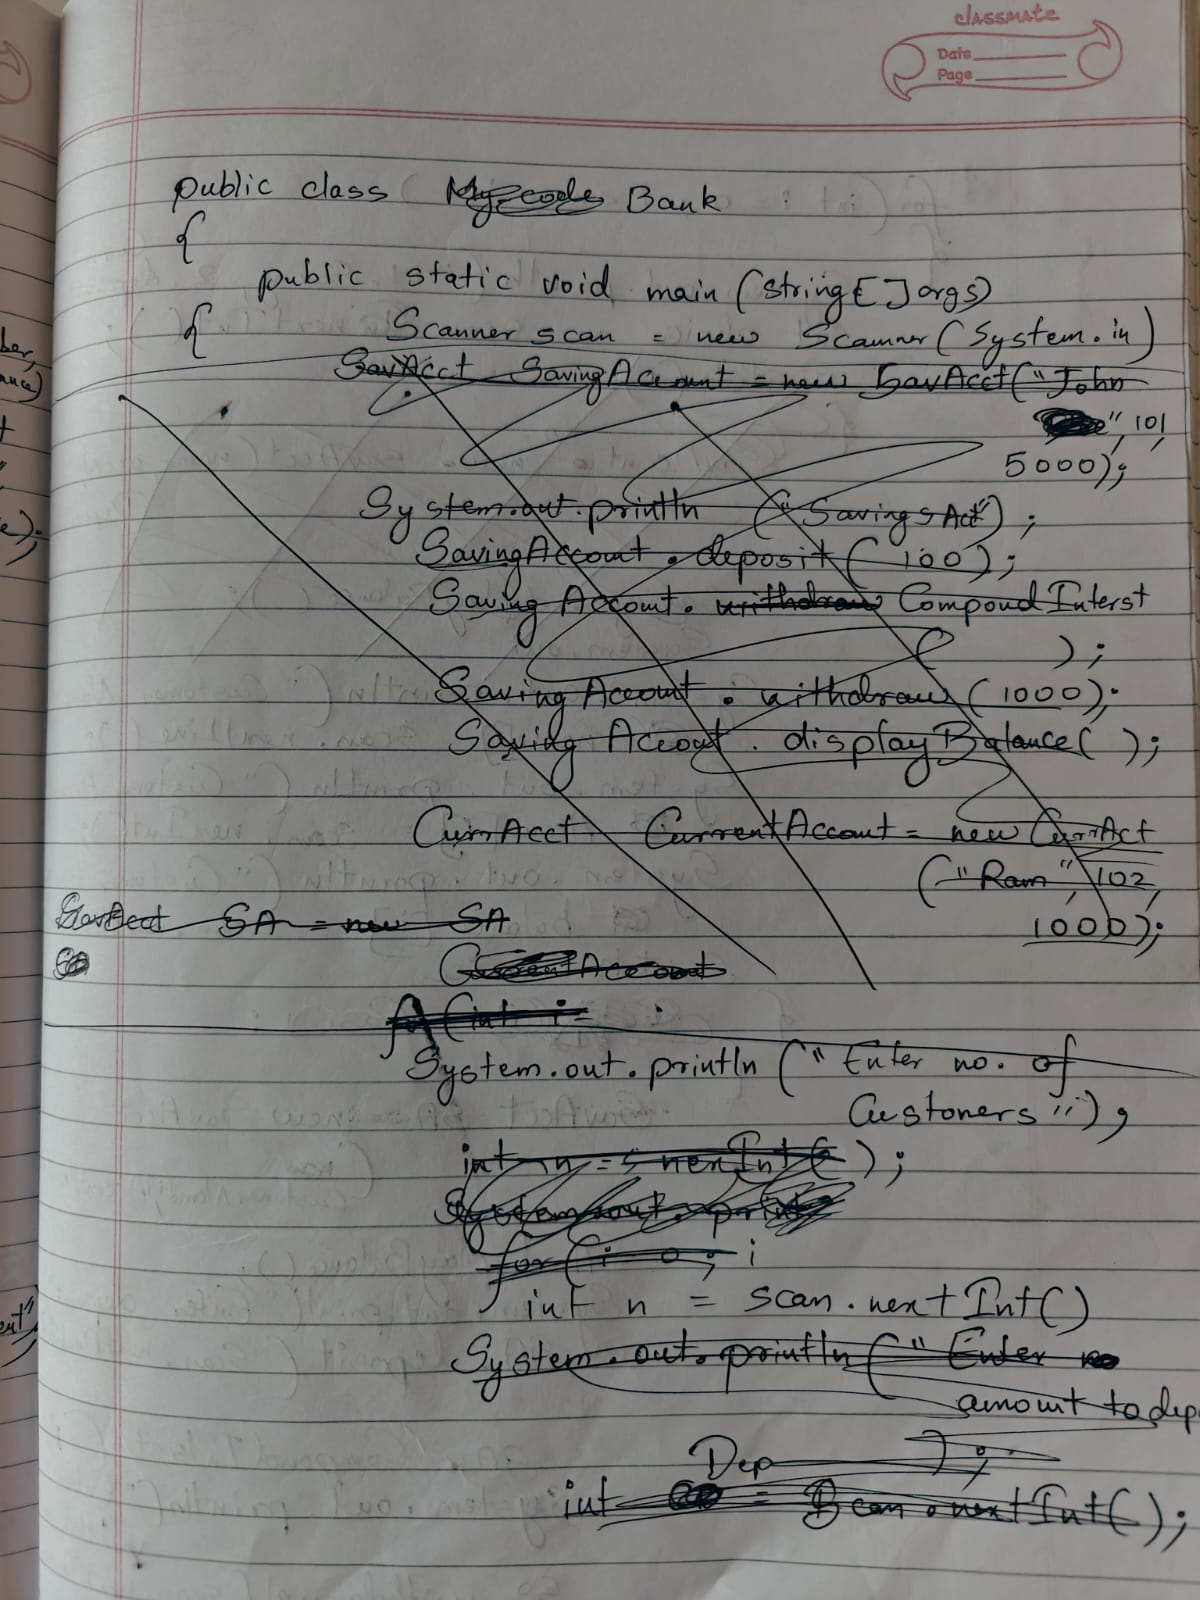 classmate
Date
Page
public class My code Bank
{
public static void main (string[] args)
{ Scanner scan = new Scanner (System.in)
SavAcct SavingAccount = new SavAcct("John
", 101,
5000);
System.out.println ("Savings Act");
SavingAccount.deposit(100);
Saving Account. withdraw Compound Interst
( );
Saving Account. withdraw (1000);
Saving Accout. displayBalance( );
CurrAcct CurrentAccount = new CurrAct
("Ram", 102,
1000);
SavAcct SA = new SA
CurrentAccount
for (int i =
System.out.println (" Enter no. of
Custoners ");
int n = s nexInt( );
System.out.print
for (i = 0; i
int n = scan.nextInt()
System.out.println (" Enter no
amount to dep
Dep );
int = Bcan.nextInt();